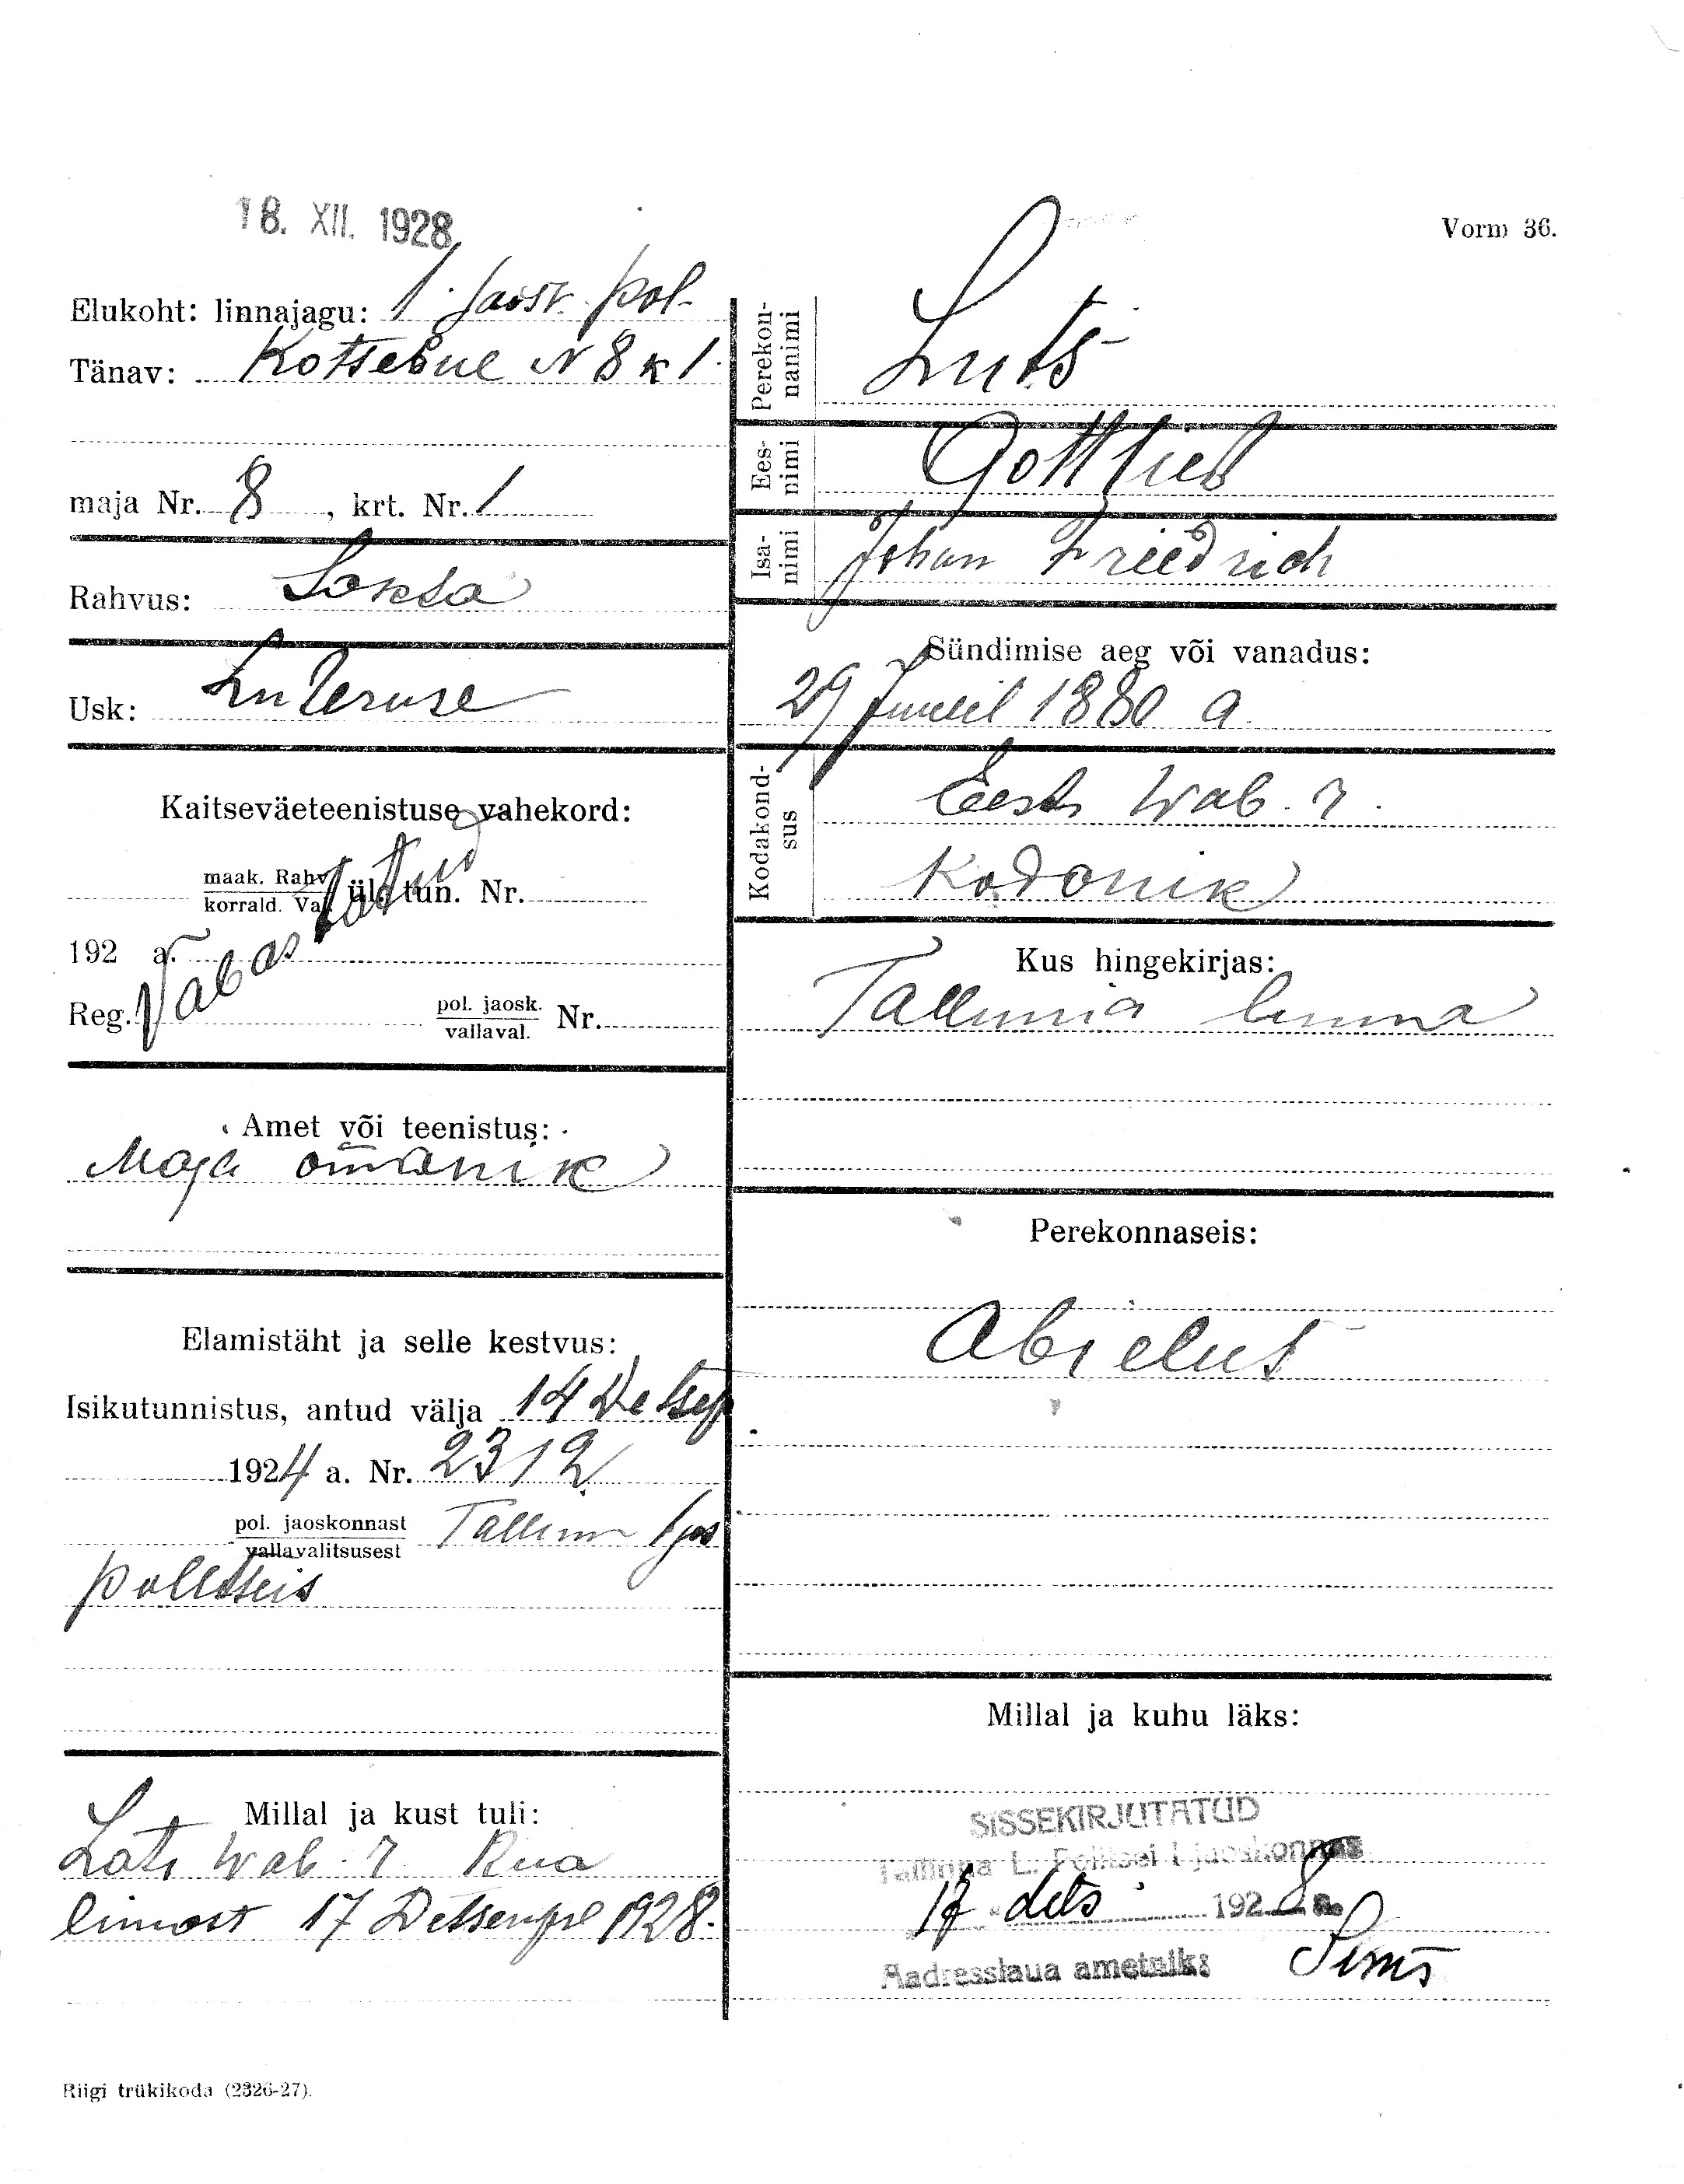 18. XII. 1928
Vorm 36.
Elukoht: linnajagu: 1. jaosk. pol.
Tänav: Kotsebue N 8 k 1.
maja Nr. 8, krt. Nr. 1
Rahvus: Saksa
Usk: Luteruse
Kaitseväeteenistuse vahekord:
maak. Rahv.
korrald. Val. ül. tun. Nr.
192 a.
Vabastatud
Reg. pol. jaosk.
vallaval. Nr.
Amet või teenistus:
Maja omanik
Elamistäht ja selle kestvus:
Isikutunnistus, antud välja 14 Detsep
1924 a. Nr. 2312
pol. jaoskonnast
vallavalitsusest Tallinn 1 jos
politseis
Millal ja kust tuli:
Lati Wab. r. Riia
linnast 17 Detsempl 1928.
Perekon-
nanimi Luts
Ees-
nimi Gottlieb
Isa-
nimi Johan Friedrich
Sündimise aeg või vanadus:
29 Juulil 1880 a.
Kodakond-
sus Eesti Wab. r.
Kodanik
Kus hingekirjas:
Tallinna linna
Perekonnaseis:
Abielus
Millal ja kuhu läks:
SISSEKIRJUTATUD
Tallinna L. Politsei I jaoskonnas
17 dets 1928 a.
Aadresslaua ametnik:
Riigi trükikoda (2326-27).